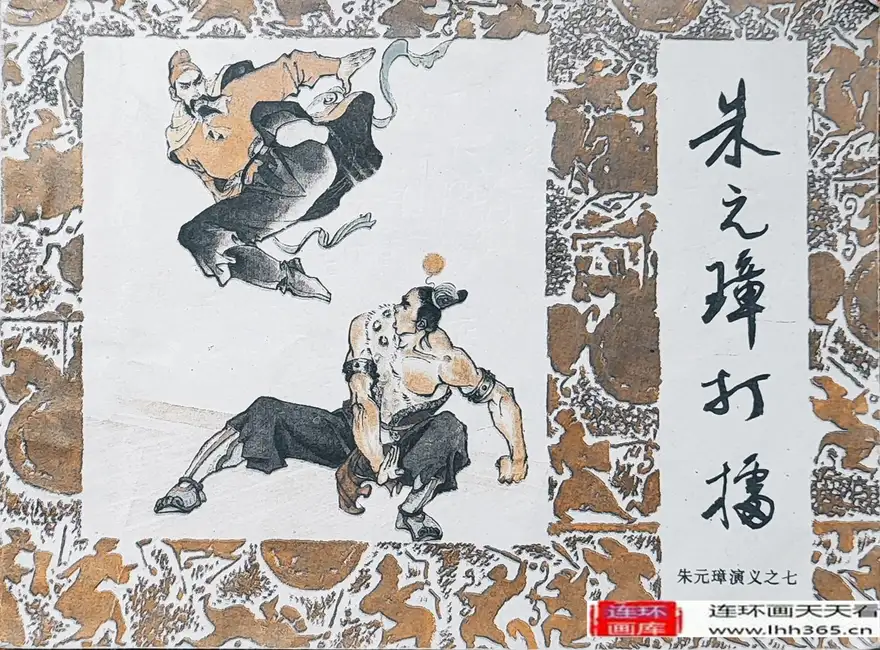 朱元璋打擂
朱元璋演义之七
连环
画库
连环画天天看
www.lhh365.cn